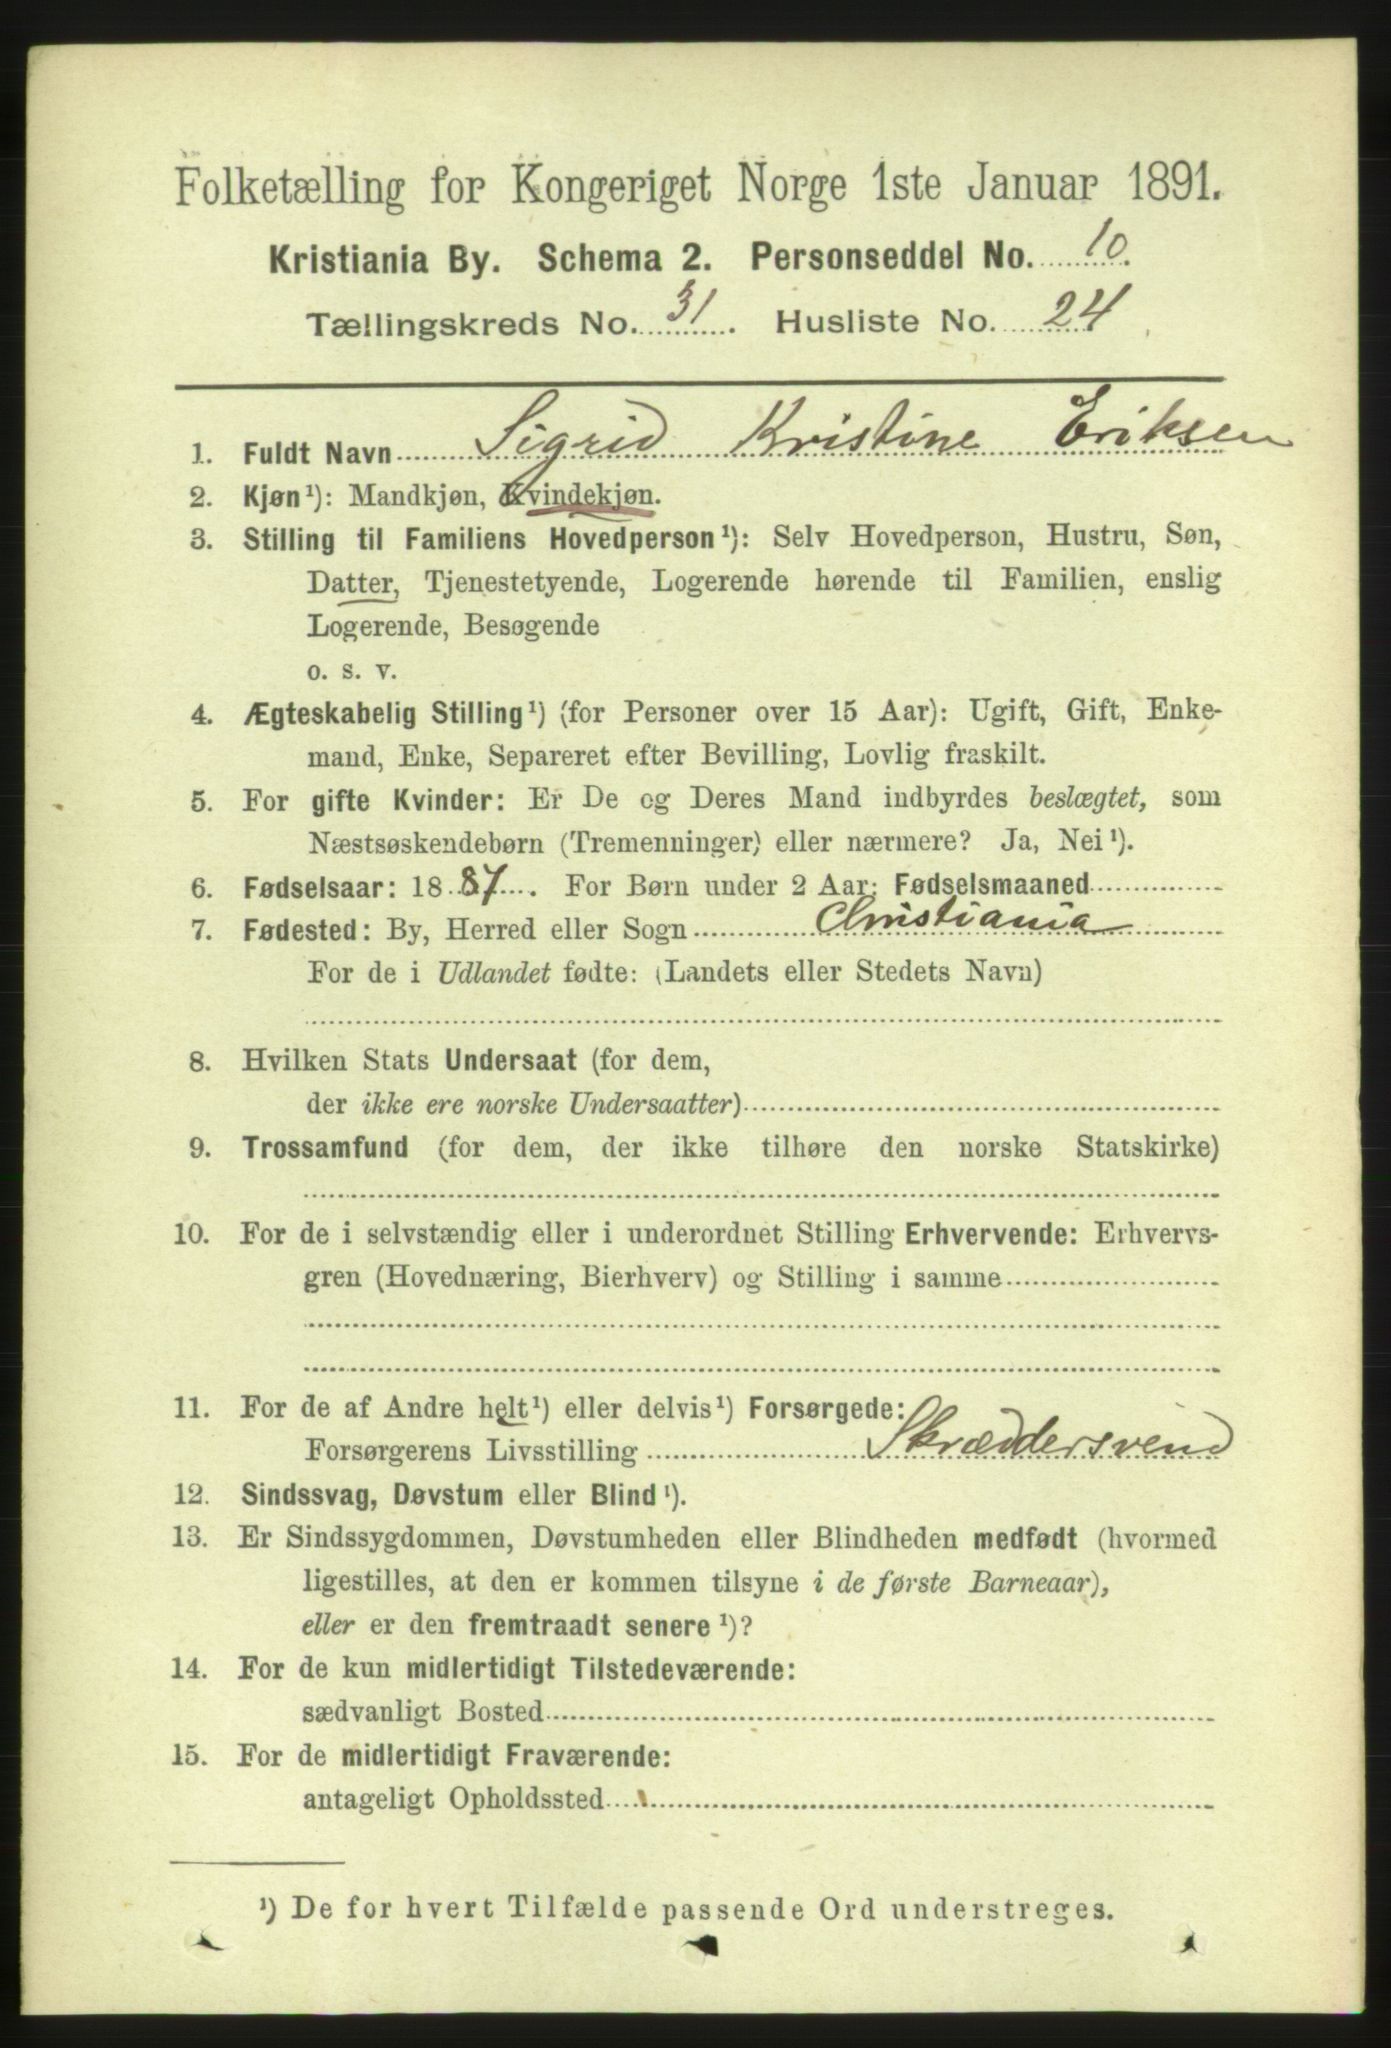 Folketælling for Kongeriget Norge 1ste Januar 1891.
Kristiania By. Schema 2. Personseddel No. 10.
Tællingskreds No. 31. Husliste No. 24
1. Fuldt Navn Sigrid Kristine Eriksen
2. Kjøn¹): Mandkjøn, Kvindekjøn.
3. Stilling til Familiens Hovedperson¹): Selv Hovedperson, Hustru, Søn,
Datter, Tjenestetyende, Logerende hørende til Familien, enslig
Logerende, Besøgende
o. s. v.
4. Ægteskabelig Stilling¹) (for Personer over 15 Aar): Ugift, Gift, Enke-
mand, Enke, Separeret efter Bevilling, Lovlig fraskilt.
5. For gifte Kvinder: Er De og Deres Mand indbyrdes beslægtet, som
Næstsøskendebørn (Tremenninger) eller nærmere? Ja, Nei¹).
6. Fødselsaar: 1887. For Børn under 2 Aar: Fødselsmaaned
7. Fødested: By, Herred eller Sogn Christiania
For de i Udlandet fødte: (Landets eller Stedets Navn)
8. Hvilken Stats Undersaat (for dem,
der ikke ere norske Undersaatter)
9. Trossamfund (for dem, der ikke tilhøre den norske Statskirke)
10. For de i selvstændig eller i underordnet Stilling Erhvervende: Erhvervs-
gren (Hovednæring, Bierhverv) og Stilling i samme
11. For de af Andre helt¹) eller delvis¹) Forsørgede:
Forsørgerens Livsstilling Skræddersvend
12. Sindssvag, Døvstum eller Blind¹).
13. Er Sindssygdommen, Døvstumheden eller Blindheden medfødt (hvormed
ligestilles, at den er kommen tilsyne i de første Barneaar),
eller er den fremtraadt senere¹)?
14. For de kun midlertidigt Tilstedeværende:
sædvanligt Bosted
15. For de midlertidigt Fraværende:
antageligt Opholdssted
¹) De for hvert Tilfælde passende Ord understreges.